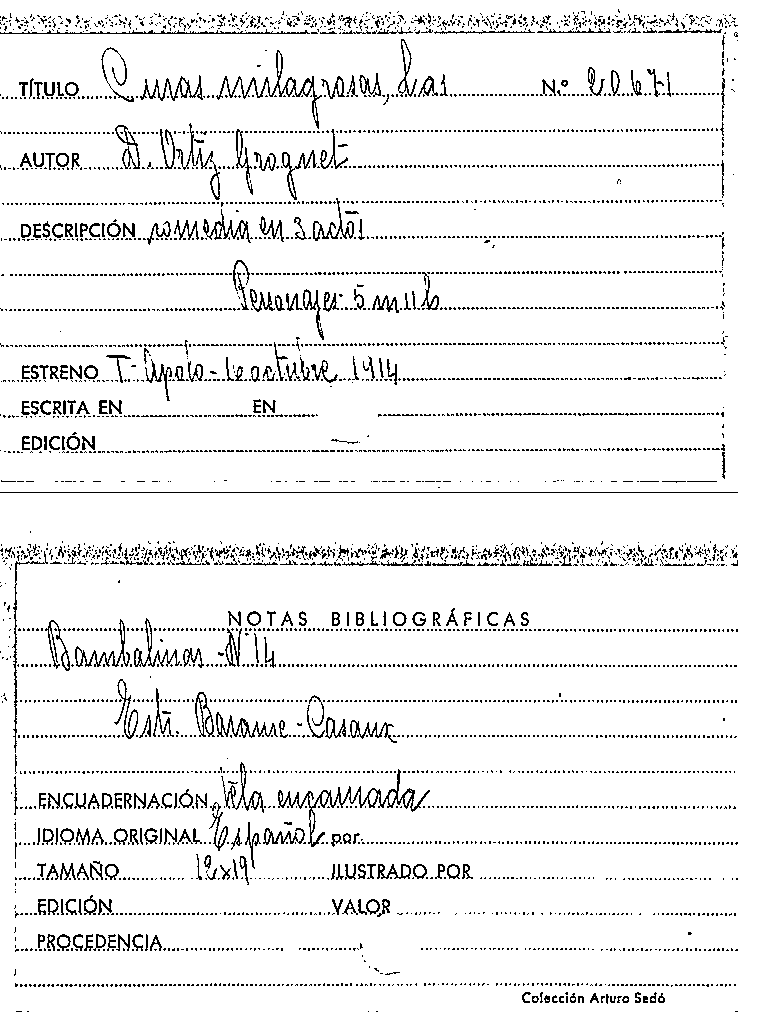 TÍTULO Curas milagrosas, Las N.º 20671
AUTOR D. Ortiz Grognet
DESCRIPCIÓN comedia en 3 actos
Personajes 5 m 11 h
ESTRENO T. Apolo - 16 octubre 1914
ESCRITA EN EN
EDICIÓN
NOTAS BIBLIOGRÁFICAS
Bambalinas - Nº 14
Estr. Casaux
ENCUADERNACIÓN tela encarnada
IDIOMA ORIGINAL Español por
TAMAÑO 12x19 ILUSTRADO POR
EDICIÓN VALOR
PROCEDENCIA
Colección Arturo Sedó